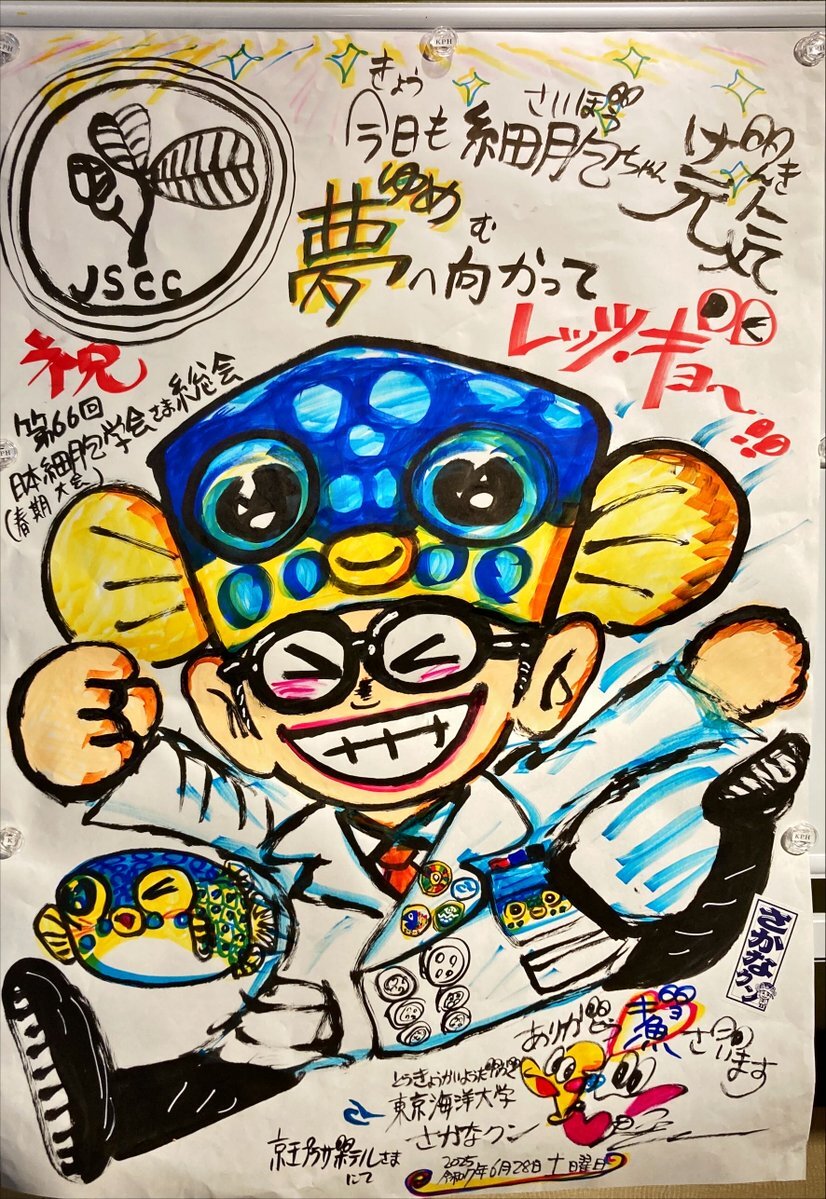 JSCC
きょう
今日も
さいぼう
細胞ちゃん
げんき
元気
ゆめ
む
夢へ向かって
レッツ・ギョー!!
祝
第66回
日本細胞学会さま総会
(春期大会)
ざかなクン
ありがとう
ギョ
魚
ざいます
とうきょうかいようだいがく
東京海洋大学
さかなクン
京王プラザホテルさま
にて
2025
令和7年6月28日土曜日
KPH